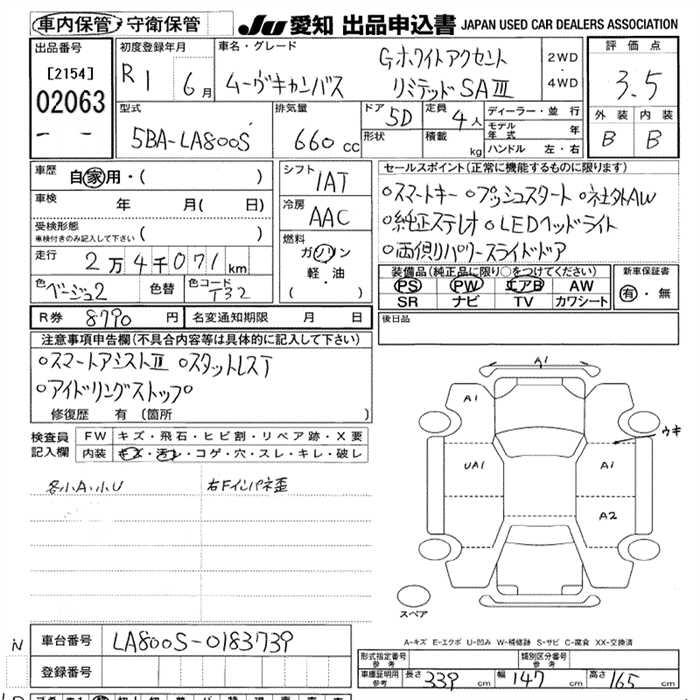 車内保管・守衛保管
JU 愛知 出品申込書 JAPAN USED CAR DEALERS ASSOCIATION
出品番号
[2154]
02063
初度登録年月
R1 6月
車名・グレード
ムーヴキャンバス
Gホワイトアクセント
リミテッドSAⅢ
2WD
・
4WD
評価点
3.5
外装 内装
B B
型式
5BA-LA800S
排気量
660 cc
ドア 5D
形状
定員 4人
積載 kg
ディーラー・並行
モデル年式 年
ハンドル 左・右
車歴 自家用・( )
車検 年 月( 日)
受検形態
車検付きのみ記入して下さい ( )
走行 2万4千071km
色 ベージュ2 色替 色コード T32
シフト 1AT
冷房 AAC
燃料
ガソリン
軽・油
( )
セールスポイント(正常に機能するものに限ります)
○スマートキー ○プッシュスタート ○社外AW
○純正ステレオ ○LEDヘッドライト
○両側パワースライドドア
装備品(純正品に限り○をつけてください)
PS PW エアB AW
SR ナビ TV カワシート
新車保証書
有・無
R券 8790円 名変通知期限 月 日
後日品
注意事項申告欄(不具合内容等は具体的に記入して下さい)
○スマートアシストⅢ ○スタットレスT
○アイドリングストップ○
修復歴 有(箇所 )
検査員記入欄
FW キズ・飛石・ヒビ割・リペア跡・X要
内装 キズ・汚レ・コゲ・穴・スレ・キレ・破レ
各小A・小U 右Fインパネ歪
A1
A1
ウキ
UA1
A1
A2
スペア
A-キズ E-エクボ U-凹み W-補修跡 S-サビ C-腐食 XX-交換済
車台番号 LA800S-0183739
登録番号
形式指定番号 参考
類別区分番号 参考
車庫証明用 参考 長さ 339 cm 幅 147 cm 高さ 165 cm